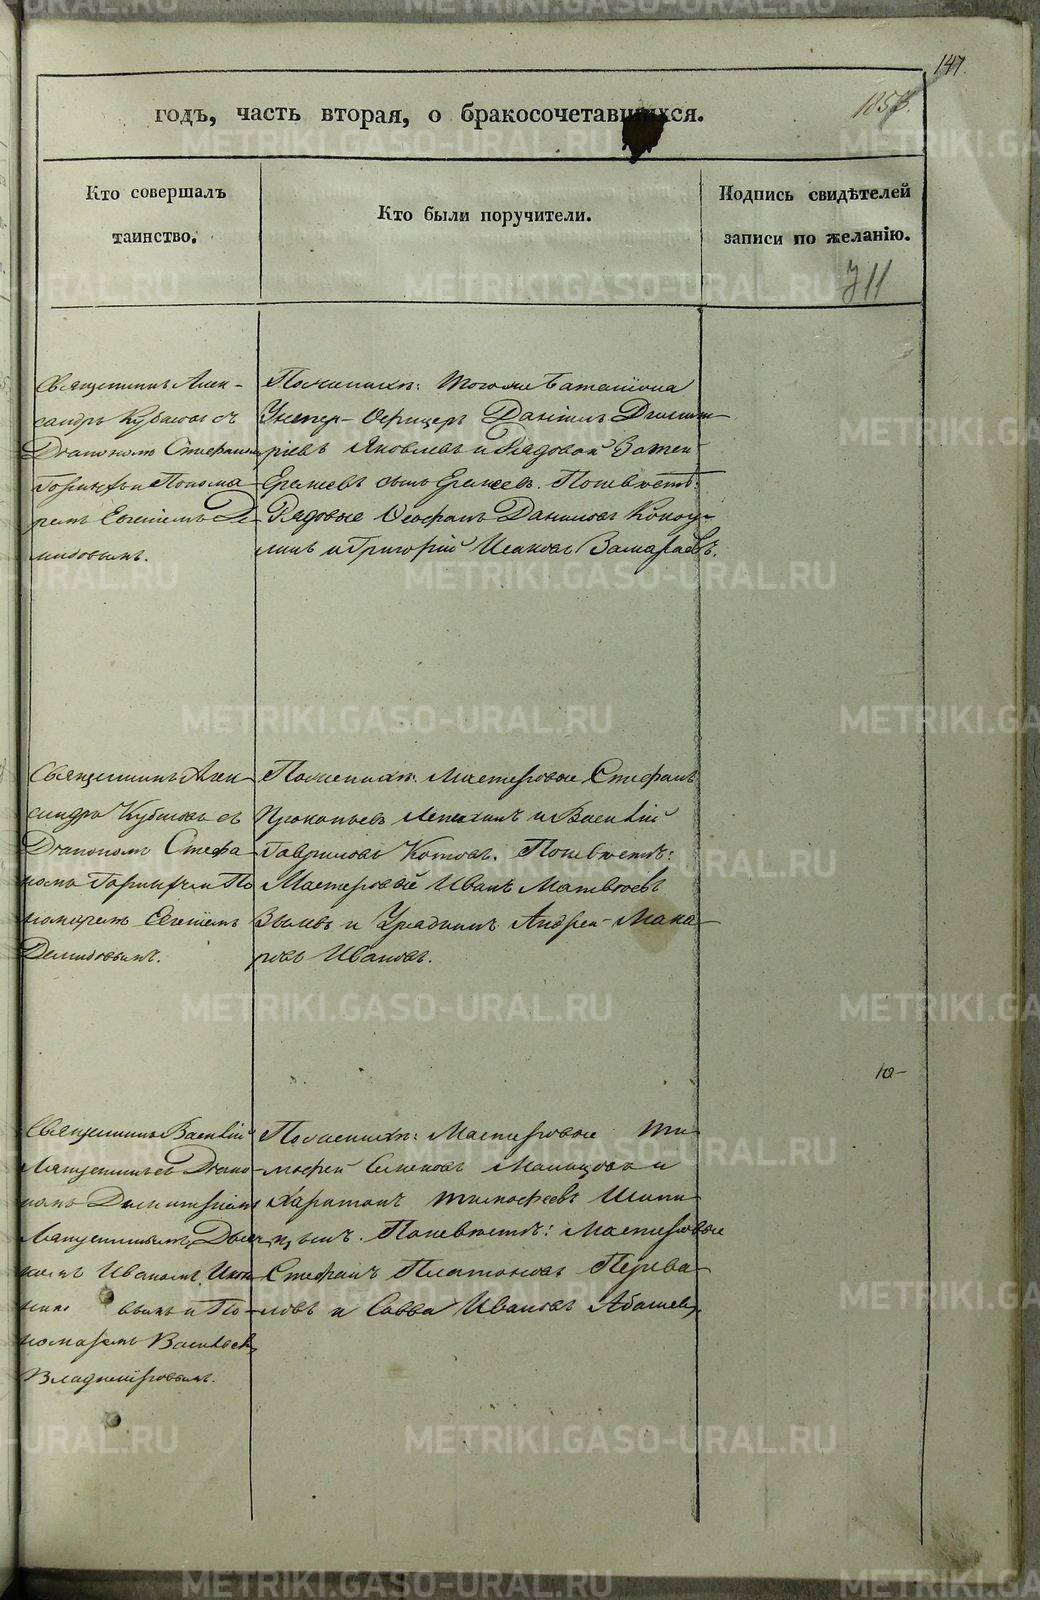 147.
1853.
годъ, часть вторая, о бракосочетавшихся.
Кто совершалъ
таинство.
Кто были поручители.
Подпись свидѣтелей
записи по желанію.
711
Священникъ Алек-
сандръ Кубасовъ съ
Діакономъ Стефаномъ
и Понома
ремъ Евгеніемъ Де-
мидовымъ.
По женихѣ: тогоже баталіона
Унтеръ-Офицеръ Даніилъ Дмит
ріевъ Яковлевъ и Рядовой
По невѣстѣ:
Рядовые Ѳеофанъ Даниловъ Кокоу-
линъ и Григорій Исаковъ Замараевъ.
Священникъ Алек-
сандръ Кубасовъ съ
Діакономъ Стефа
номъ и По
номаремъ Евгеніемъ
Демидовымъ.
По женихѣ: Мастеровые Стефанъ
Прокопьевъ и Василій
Гавриловъ Котовъ. По невѣстѣ:
Мастеровые Иванъ Матвѣевъ
Зыковъ и Урядникъ Андрей Мака-
ровъ Ивановъ.
10-
Священникъ Василій
съ Діако-
номъ Димитріемъ
комъ Иваномъ
вымъ и По-
номаремъ Васильемъ
Владиміровымъ.
По женихѣ: Мастеровые Ти-
мофей и
Харитонъ Тимофеевъ Шипи-
цынъ. По невѣстѣ: Мастеровые
Стефанъ Платоновъ Перева-
ловъ и Савва Ивановъ Абашевъ.
METRIKI.GASO-URAL.RU